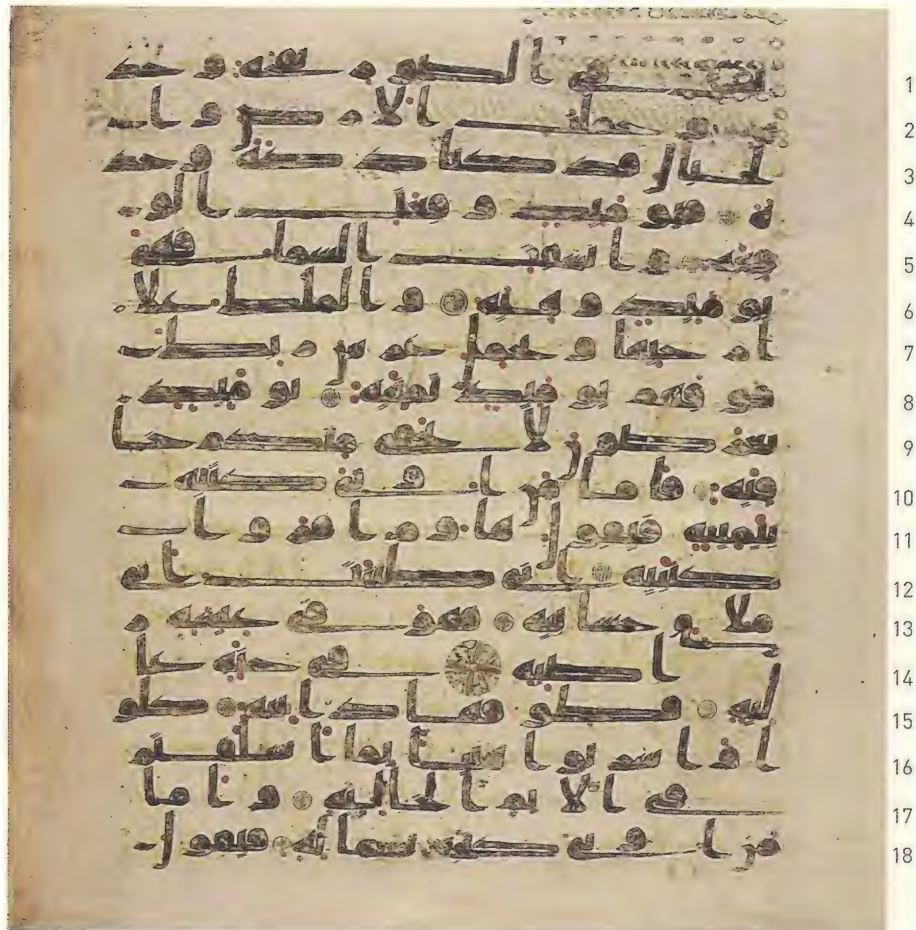 1 نفخ في الصور نفخة وحد
2 ة وحملت الارض وا
3 لجبال فدكتا دكة وحد
4 ة فيومئذ وقعت الو
5 قعة وانشقت السما فهي
6 يومئذ وهية والملك علا
7 ارجائها ويحمل عرش ربك
8 فوقهم يومئذ ثمنية يومئذ
9 تعرضون لا تخفى منكم خا
10 فية فاما من اوتي كتبه
11 بيمينه فيقول هاوم اقروا
12 كتبيه اني ظننت اني
13 ملق حسابيه فهو في عيشة ر
14 اضية في جنة عا
15 لية قطوفها دانية كلو
16 ا واشربوا هنيا بما اسلفتم
17 في الايام الخالية واما
18 من اوتي كتبه بشماله فيقول